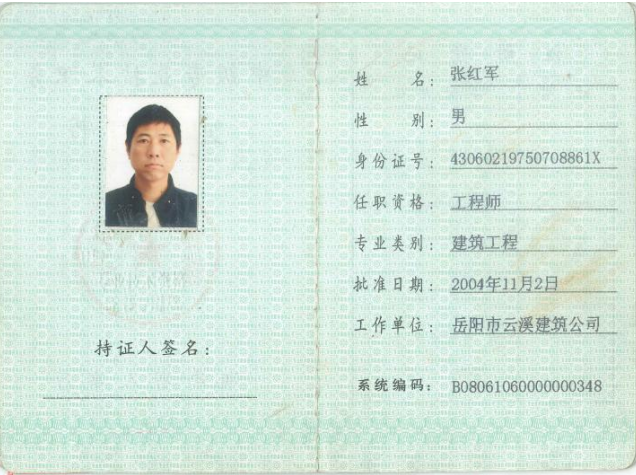 持证人签名：
姓 名：张红军
性 别：男
身份证号：43060219750708861X
任职资格：工程师
专业类别：建筑工程
批准日期：2004年11月2日
工作单位：岳阳市云溪建筑公司
系统编码：B08061060000000348